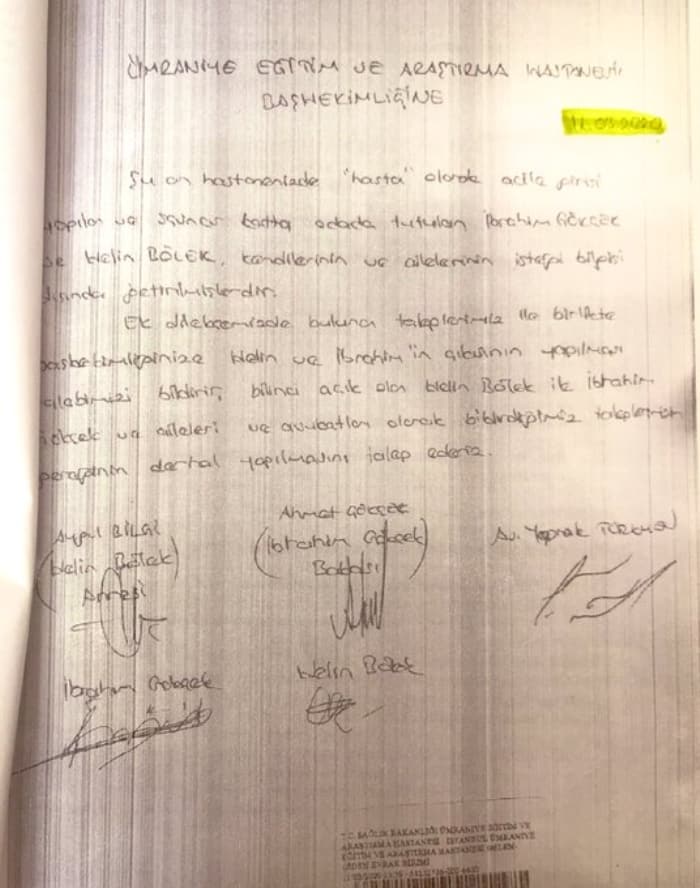 ÜMRANİYE EĞİTİM VE ARAŞTIRMA HASTANESİ
BAŞHEKİMLİĞİNE
11.03.2020
Şu an hastanenizde "hasta" olarak acile girişi
yapılan ve ikinci katta odada tutulan İbrahim GÖKÇEK
ve Helin BÖLEK, kendilerinin ve ailelerinin isteği bilgisi
dışında getirilmişlerdir.
Ek dilekçemizde bulunan taleplerimiz ile birlikte
başhekimliğinize Helin ve İbrahim'in çıkışının yapılması
talebimizi bildirir, bilinci açık olan Helin Bölek ile İbrahim
Gökçek ve aileleri ve avukatları olarak bildirdiğimiz taleplerimizin
gereğinin derhal yapılmasını talep ederiz.
Aygül BİLGİ
(Helin Bölek
Annesi)
Ahmet GÖKÇEK
(İbrahim Gökçek
Babası)
Av. Yaprak TÜRKMEN
İbrahim Gökçek
Helin Bölek
T.C. SAĞLIK BAKANLIĞI ÜMRANİYE EĞİTİM VE
ARAŞTIRMA HASTANESİ - İSTANBUL ÜMRANİYE
EĞİTİM VE ARAŞTIRMA HASTANESİ GELEN-
GİDEN EVRAK BİRİMİ